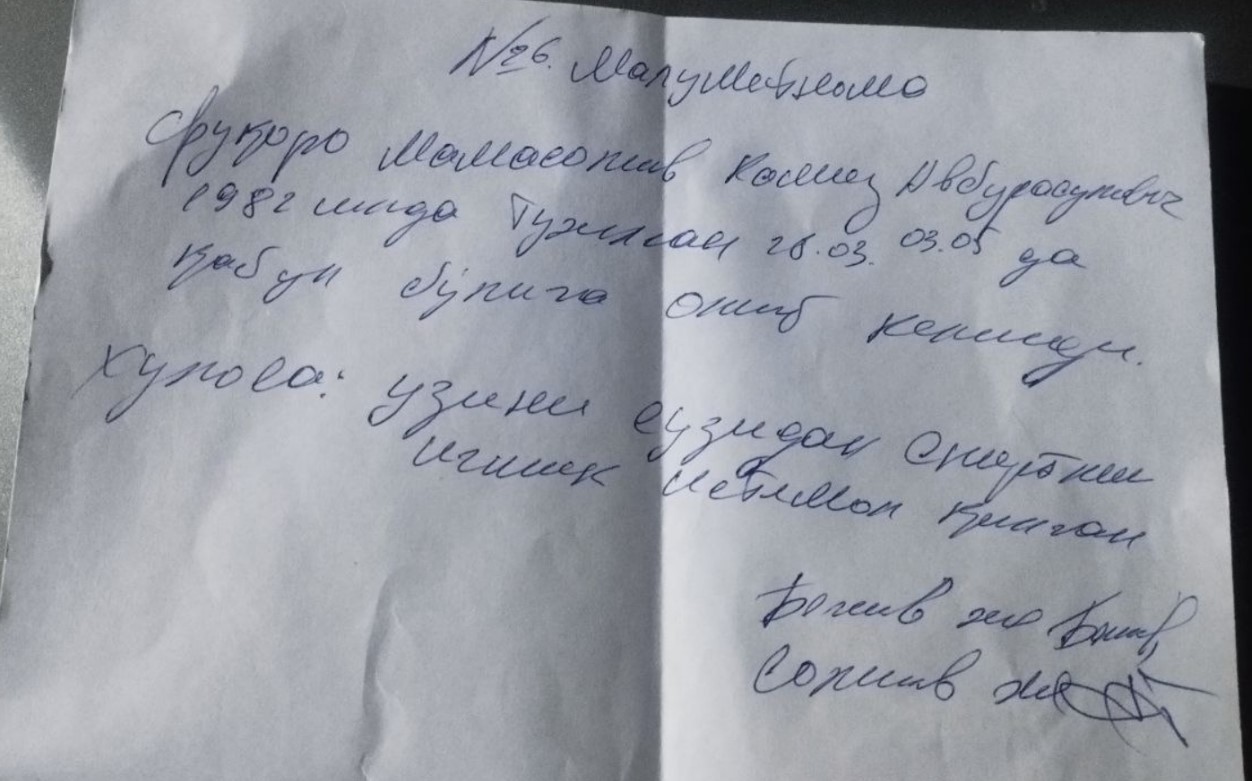 №26. Малумотнома
Фукоро Мамасолив Комил Авбурасулович
1982 йилда Тужилган 28.03. 03.05 да
қабул бўлига олиб келинди.
Хулоса: узини сузидан спиртни
ичлик истимол қилган
жа
Солиев